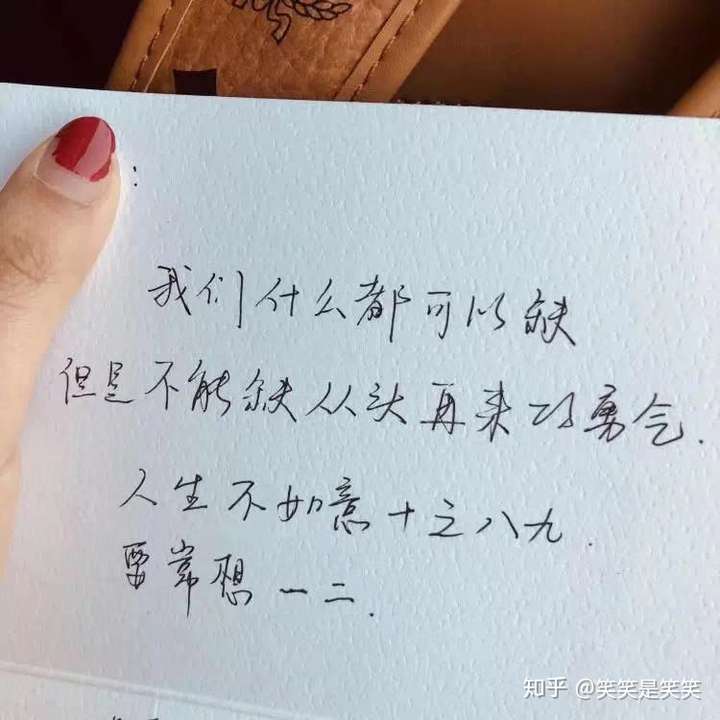 我们什么都可以缺
但是不能缺从头再来的勇气.
人生不如意十之八九.
要常想一二.
知乎 @笑笑是笑笑